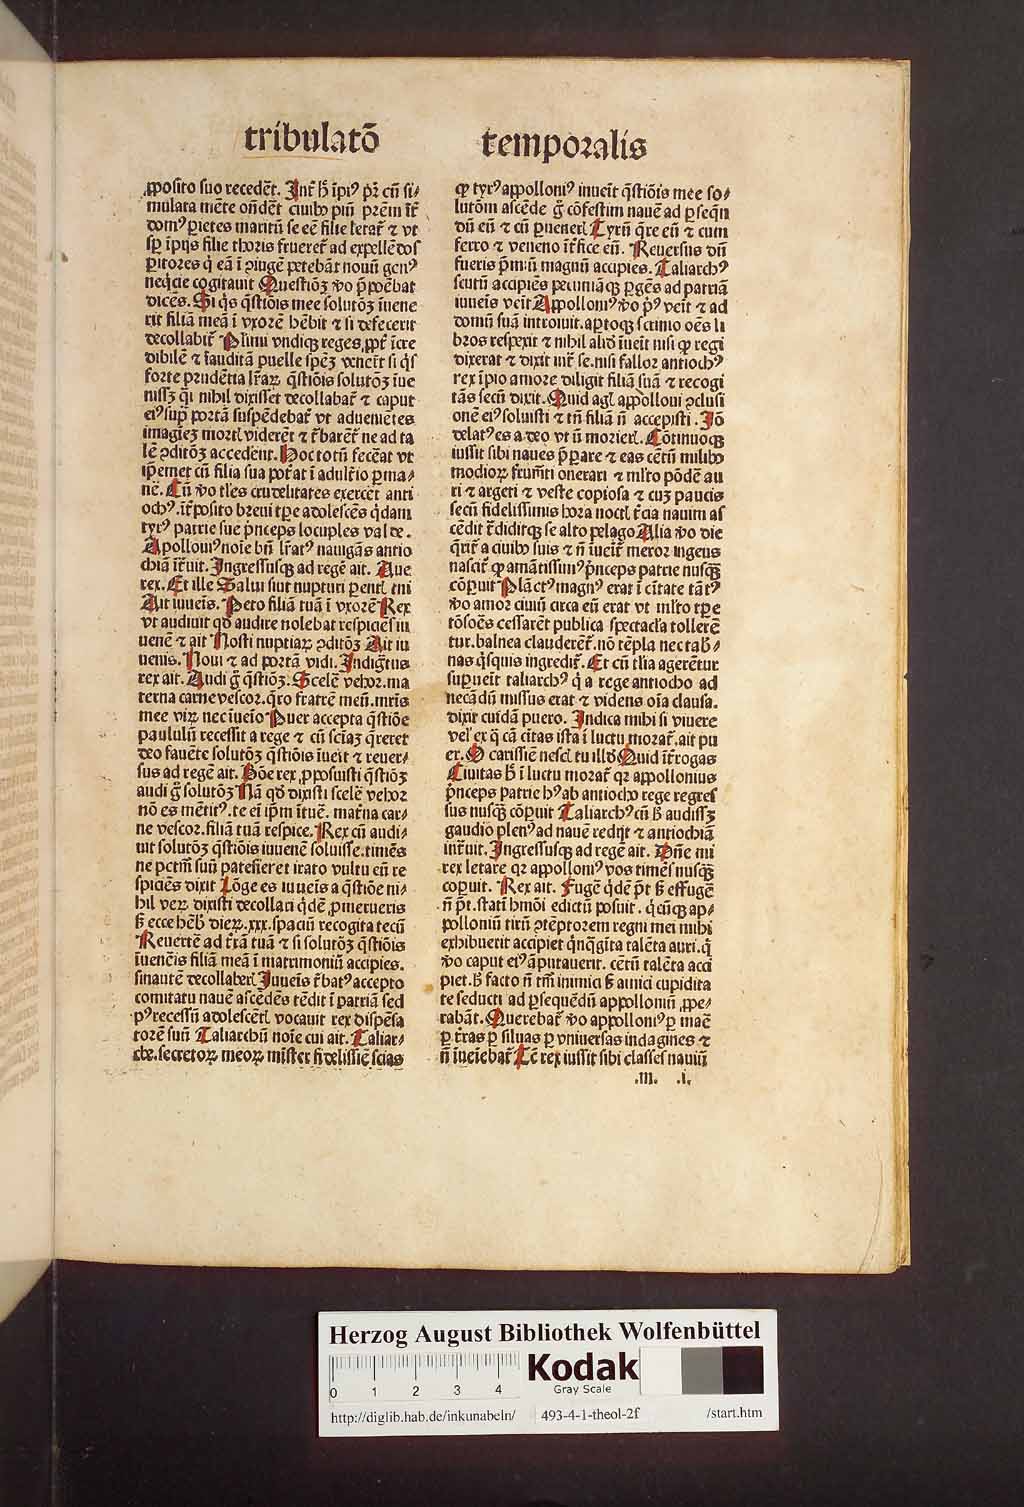 tribulatõ temporalis
ꝓposito suo recedẽt. Int̃ h̃ ĩpiꝰ pr̃ cũ si⸗
mulata mẽte oñdẽt ciuibꝰ piũ prẽm it̃
domꝰ ꝑietes maritũ se eẽ filie letat̃ ⁊ vt
sꝑ ĩpijs filie thoris frueret̃ ad expellẽdos
ꝑitores q̇ eã ĩ ꝯiugẽ petebãt nouũ genꝰ
neq̇cie cogitauit Questiõꝫ ꝟo ꝓ̃poẽbat
dicẽs. Si q̇s q̃stiõis mee solutõꝫ iuene
rit filiã meã ĩ vxorẽ hẽbit ⁊ si defecerit
decollabit̃ Plimi vndiqꝫ reges ꝓpt̃ ĩcre
dibilẽ ⁊ ĩauditã puelle spẽꝫ venert̃ si q̇s
forte prudẽtia lr̃aꝝ q̃stiõis solutõꝫ ĩue
nissꝫ q̇ nihil dixisset decollabat̃ ⁊ caput
eiꝰ suꝑ portã suspẽdebat̃ vt aduenietes
imagieꝫ mortꝭ viderẽt ⁊ t̃barẽt̃ ne ad ta
lẽ ꝯditõꝫ accederẽt. Hoc totũ fecẽat vt
ip̃emet cũ filia sua pot̃at ĩ adult̃io ꝑma
nẽ. Cũ ꝟo tl̃es crudelitates exercet̃ anti
ochꝰ. it̃posito breui tꝑe adolescẽs q̃dam
tyrꝰ patrie sue p̃nceps locuples valde.
Apolloniꝰ noĩe bñ lr̃atꝰ nauigãs antio
chiã ĩt̃uit. Ingressusqꝫ ad regẽ ait. Aue
rex. Et ille Salui sint nupturi ꝑentꝭ tui
Ait iuueĩs. Peto filiã tuã ĩ vxorẽ Rex
vt audiuit qḋ audire nolebat respiciẽs iu
uenẽ ⁊ ait Nosti nuptiaꝝ ꝯditõꝫ Ait iu
uenis. Noui ⁊ ad portã vidi. Indigt̃us
rex ait. Audi g̃ q̃stiõꝫ. Scelẽ vehor. ma
terna carne vescor. q̃ro fratrẽ meũ. mr̃is
mee viꝝ nec ĩueĩo Puer accepta q̃stiõe
paululũ recessit a rege ⁊ cũ sciãꝫ q̃reret
deo fauẽte solutõꝫ q̃stiõis ĩueit ⁊ reuer⸗
sus ad regẽ ait. Bõe rex ꝓposuisti q̃stiõꝫ
audi g̃ solutõꝫ Nã qḋ dixisti scelẽ vehor
nõ es mẽtitꝰ. te eĩ ip̃m ĩtuẽ. mat̃na car⸗
ne vescor. filiã tuã respice. Rex cũ audi⸗
uit solutõꝫ q̃stiõis iuuenẽ soluisse. timẽs
ne pctm̃ suũ patefieret irato vultu eũ re
spiciẽs dixit Lõge es iuueĩs a q̃stiõe ni⸗
hil veꝝ dixisti decollari q̇dẽ ꝓmerueris
ß ecce hẽbꝭ dieꝝ. xxx. spaciũ recogita tecũ
Reuertẽ ad t̃rã tuã ⁊ si solutõꝫ q̃stiõis
ĩuenẽis filiã meã ĩ matrimoniũ accipies.
sinautẽ decollaberꝭ Iuueĩs t̃batꝰ accepto
comitatu nauẽ ascẽdẽs tẽdit ĩ patriã sed
pꝰ recessũ adolescẽtꝭ vocauit rex dispẽsa
torẽ suũ Taliarchũ noĩe cui ait. Taliar⸗
che. secretoꝝ meoꝝ mister fidelissiẽ scias
qꝫ tyrꝰ appolloniꝰ inueĩt q̃stiõis mee so⸗
lutõm ascẽde g̃ cõfestim nauẽ ad ꝑseq̃n
dũ eũ ⁊ cũ ꝑuenerꝭ Tyrũ q̃re eũ ⁊ cum
ferro ⁊ veneno ĩt̃fice eũ. Reuersus dũ
fueris p̃m:ũ magnũ accipies. Taliarchꝰ
scutũ accipiẽs pecuniãqꝫ ꝑgẽs ad patriã
iuueĩs veĩt Appolloniꝰ ꝟo p̃ꝰ veĩt ⁊ ad
domũ suã introiuit. aꝑtoqꝫ scrinio oẽs li
bros respexit ⁊ nihil aliḋ ĩueĩt nisi qꝫ regi
dixerat ⁊ dixit int̃ se. nisi fallor antiochꝰ
rex ĩpio amore diligit filiã suã ⁊ recogi
tãs secũ dixit. Quid agꝭ appolloni ꝯclusi
onẽ eiꝰ soluisti ⁊ tñ filiã ñ accepisti. Iõ
delatꝰ es a deo vt ñ morierꝭ. Cõtinuoqꝫ
iussit sibi naues p̃ꝑare ⁊ eas cẽtũ milibꝰ
modioꝝ frumẽti onerari ⁊ ml̃to põdẽ au
ri ⁊ argeti ⁊ veste copiosa ⁊ cuꝫ paucis
secũ fidelissimis hora noctꝭ t̃cia nauim as
cẽdit t̃diditqꝫ se alto pelago Alia ꝟo die
q̃rit̃ a ciuibꝰ suis ⁊ ñ ĩueit̃ meror ingens
nascit̃ qꝫ amãtissimꝰ p̃nceps patrie nusqꝫ̃
cõꝑuit Plãctꝰ magnꝰ erat ĩ ciitate tãtꝰ
ꝟo amor ciuiũ circa eũ erat vt ml̃to tꝑe
tõsoẽs cessarẽt publica spectacl̃a tollerẽ
tur. balnea clauderẽt̃. nõ tẽpla nec tabꝰ⸗
nas q̃squis ingredit̃. Et cũ tl̃ia agerẽtur
suꝑueĩt taliarchꝰ q̇ a rege antiocho ad
necãdũ missus erat ⁊ videns oĩa clausa.
dixit cuidã puero. Indica mihi si viuere
vel' ex q̃ cã ciitas ista ĩ luctu morat̃. ait pu
er. O carissiẽ nescꝭ tu illḋ Quid ĩt̃rogas
Ciuitas h̃ ĩ luctu morat̃ qꝛ appollonius
p̃nceps patrie hꝰ ab antiocho rege regres
sus nusqꝫ̃ cõꝑuit Taliarchꝰ cũ h̃ audissꝫ
gaudio plenꝰ ad nauẽ redijt ⁊ antiochiã
int̃uit. Ingressusqꝫ ad regẽ ait. Dñe mi
rex letare qꝛ appolloniꝰ vos timẽs nusqꝫ̃
coꝑuit. Rex ait. Fugẽ q̇dẽ p̃t ß effugẽ
ñ p̃t. statĩ hmõi edictũ posuit. q̇cũqꝫ ap⸗
polloniũ tiriũ ꝯtẽptorem regni mei mihi
exhibuerit accipiet q̇nq̃gĩta talẽta auri. q̇
ꝟo caput eiꝰ ãputauerit. cẽtũ talẽta acci
piet. h̃ facto ñ tm̃ inimici ß amici cupidita
te seducti ad ꝑsequẽdũ appolloniũ ꝓpe⸗
rabãt. Querebat̃ ꝟo appolloniꝰ ꝑ maẽ
ꝑ t̃ras ꝑ siluas ꝑ vniuersas indagines ⁊
ñ ĩueĩebat̃ Tẽ rex iussit sibi classes nauiũ
.m. .i.
Herzog August Bibliothek Wolfenbüttel
0 1 2 3 4
Kodak
Gray Scale
http://diglib.hab.de/inkunabeln/ 493-4-1-theol-2f /start.htm